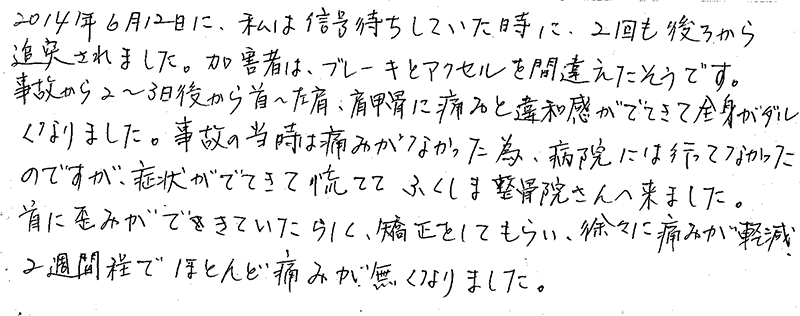 2014年6月12日に、私は信号待ちしていた時に、2回も後ろから
追突されました。加害者は、ブレーキとアクセルを間違えたそうです。
事故から2〜3日後から首〜左肩、肩甲骨に痛みと違和感がでてきて全身がダル
くなりました。事故の当時は痛みがなかった為、病院には行ってなかった
のですが、症状がでてきて慌てて ふくしま整骨院さんへ来ました。
首に歪みができていたらしく、矯正をしてもらい、徐々に痛みが軽減、
2週間程でほとんど痛みが無くなりました。